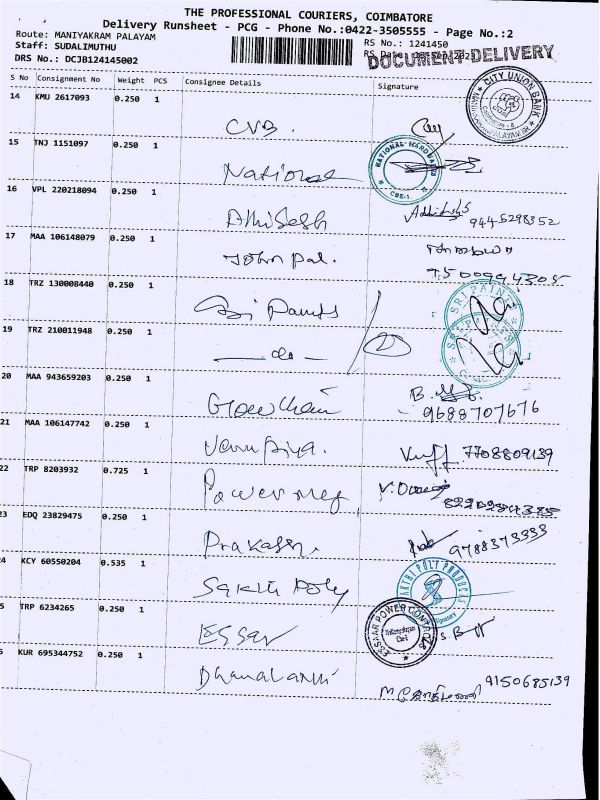 THE PROFESSIONAL COURIERS, COIMBATORE
Delivery Runsheet - PCG - Phone No.:0422-3505555 - Page No.:2
Route: MANIYAKRAM PALAYAM
RS No.: 1241450
Staff: SUDALIMUTHU
RS Date:
DOCUMENT DELIVERY
DRS No.: DCJB124145002
S No Consignment No Weight PCS Consignee Details Signature
CITY UNION BANK
14 KMU 2617093 0.250 1
CVB.
15 TNJ 1151097 0.250 1
National
NATIONAL HARDWARE
CBE-1
16 VPL 220218094 0.250 1
Abhisesh
9445298352
17 MAA 106148079 0.250 1
John pal.
9500994305
18 TRZ 130008440 0.250 1
Sri Paints
SRI PAINTS
19 TRZ 210011948 0.250 1
— do —
20 MAA 943659203 0.250 1
Gowtham
B.
9688707676
21 MAA 106147742 0.250 1
7708809139
22 TRP 8203932 0.725 1
Power meg
23 EDQ 23829475 0.250 1
Prakash.
9788373333
24 KCY 60550204 0.535 1
Sakthi Poly
POLY PRODUCTS
5 TRP 6234265 0.250 1
Essar
ESSAR POWER CONTROLS
6 KUR 695344752 0.250 1
Dhanalaxmi
9150685139